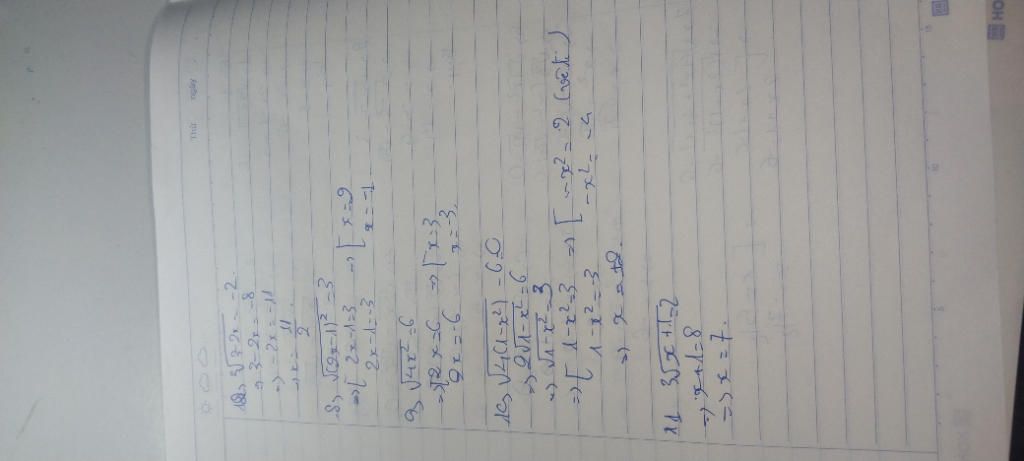 Thứ
ngày
12, ∛3-2x = -2
⇒ 3-2x = -8
⇒ -2x = -11
⇒ x = 11/2
8, √(2x-1)² = 3
⇒ [ 2x-1=3 ⇒ [ x=2
2x-1=-3 x=-1
9, √4x² = 6
⇒ [ 2x=6 ⇒ [ x=3
2x=-6 x=-3
10, √4(1-x²) - 6=0
⇒ 2√1-x² = 6
⇒ √1-x² = 3
⇒ [ 1-x²=3 ⇒ [ -x² = 2
1-x²=-3 -x² = -4
⇒ x = ±2
11 ∛x+1 = 2
⇒ x+1=8
⇒ x = 7.